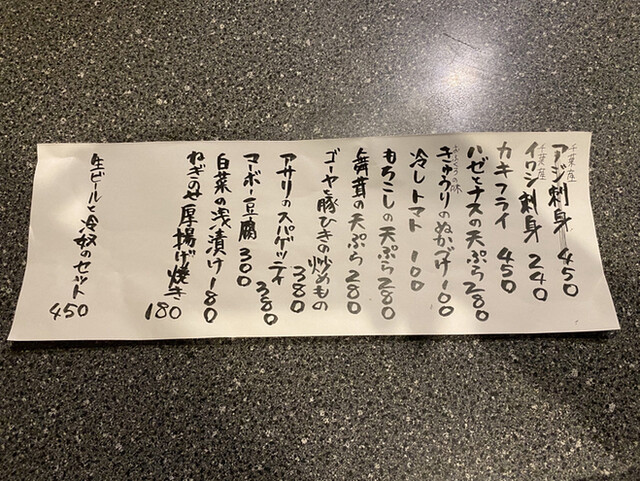 千葉産
アジ刺身 450
千葉産
イワシ刺身 240
カキフライ 450
ハゼとナスの天ぷら 280
おふくろの味
きゅうりのぬかづけ 100
冷しトマト 100
もろこしの天ぷら 280
舞茸の天ぷら 280
ゴーヤと豚ひきの炒めもの
380
アサリのスパゲッティ
380
マーボー豆腐 300
白菜の浅漬け 180
ねぎのせ厚揚げ焼き
180
生ビールと冷奴のセット
450